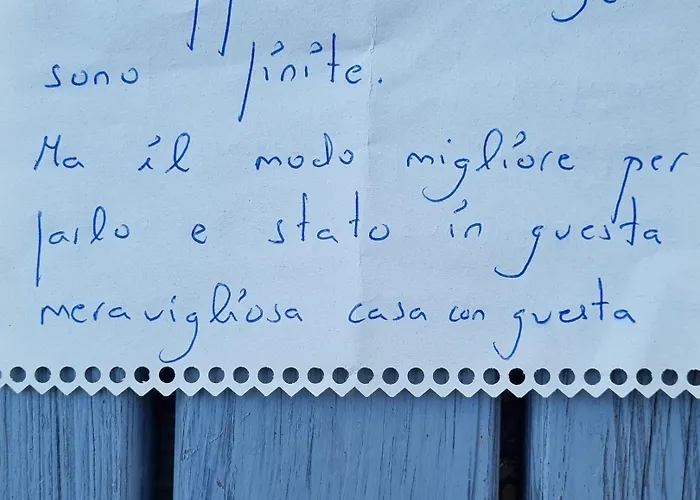 sono finite.
Ma il modo migliore per
farlo e stato in questa
meravigliosa casa con questa